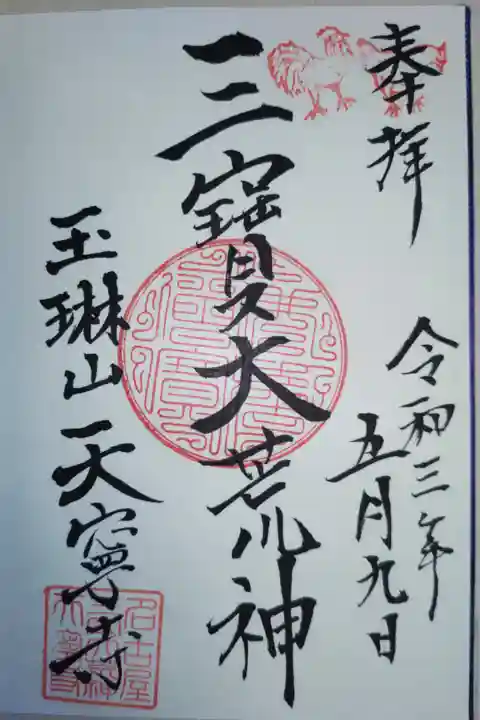 奉拝
令和三年
五月九日
三寳大荒神
玉琳山天寧寺
名古屋